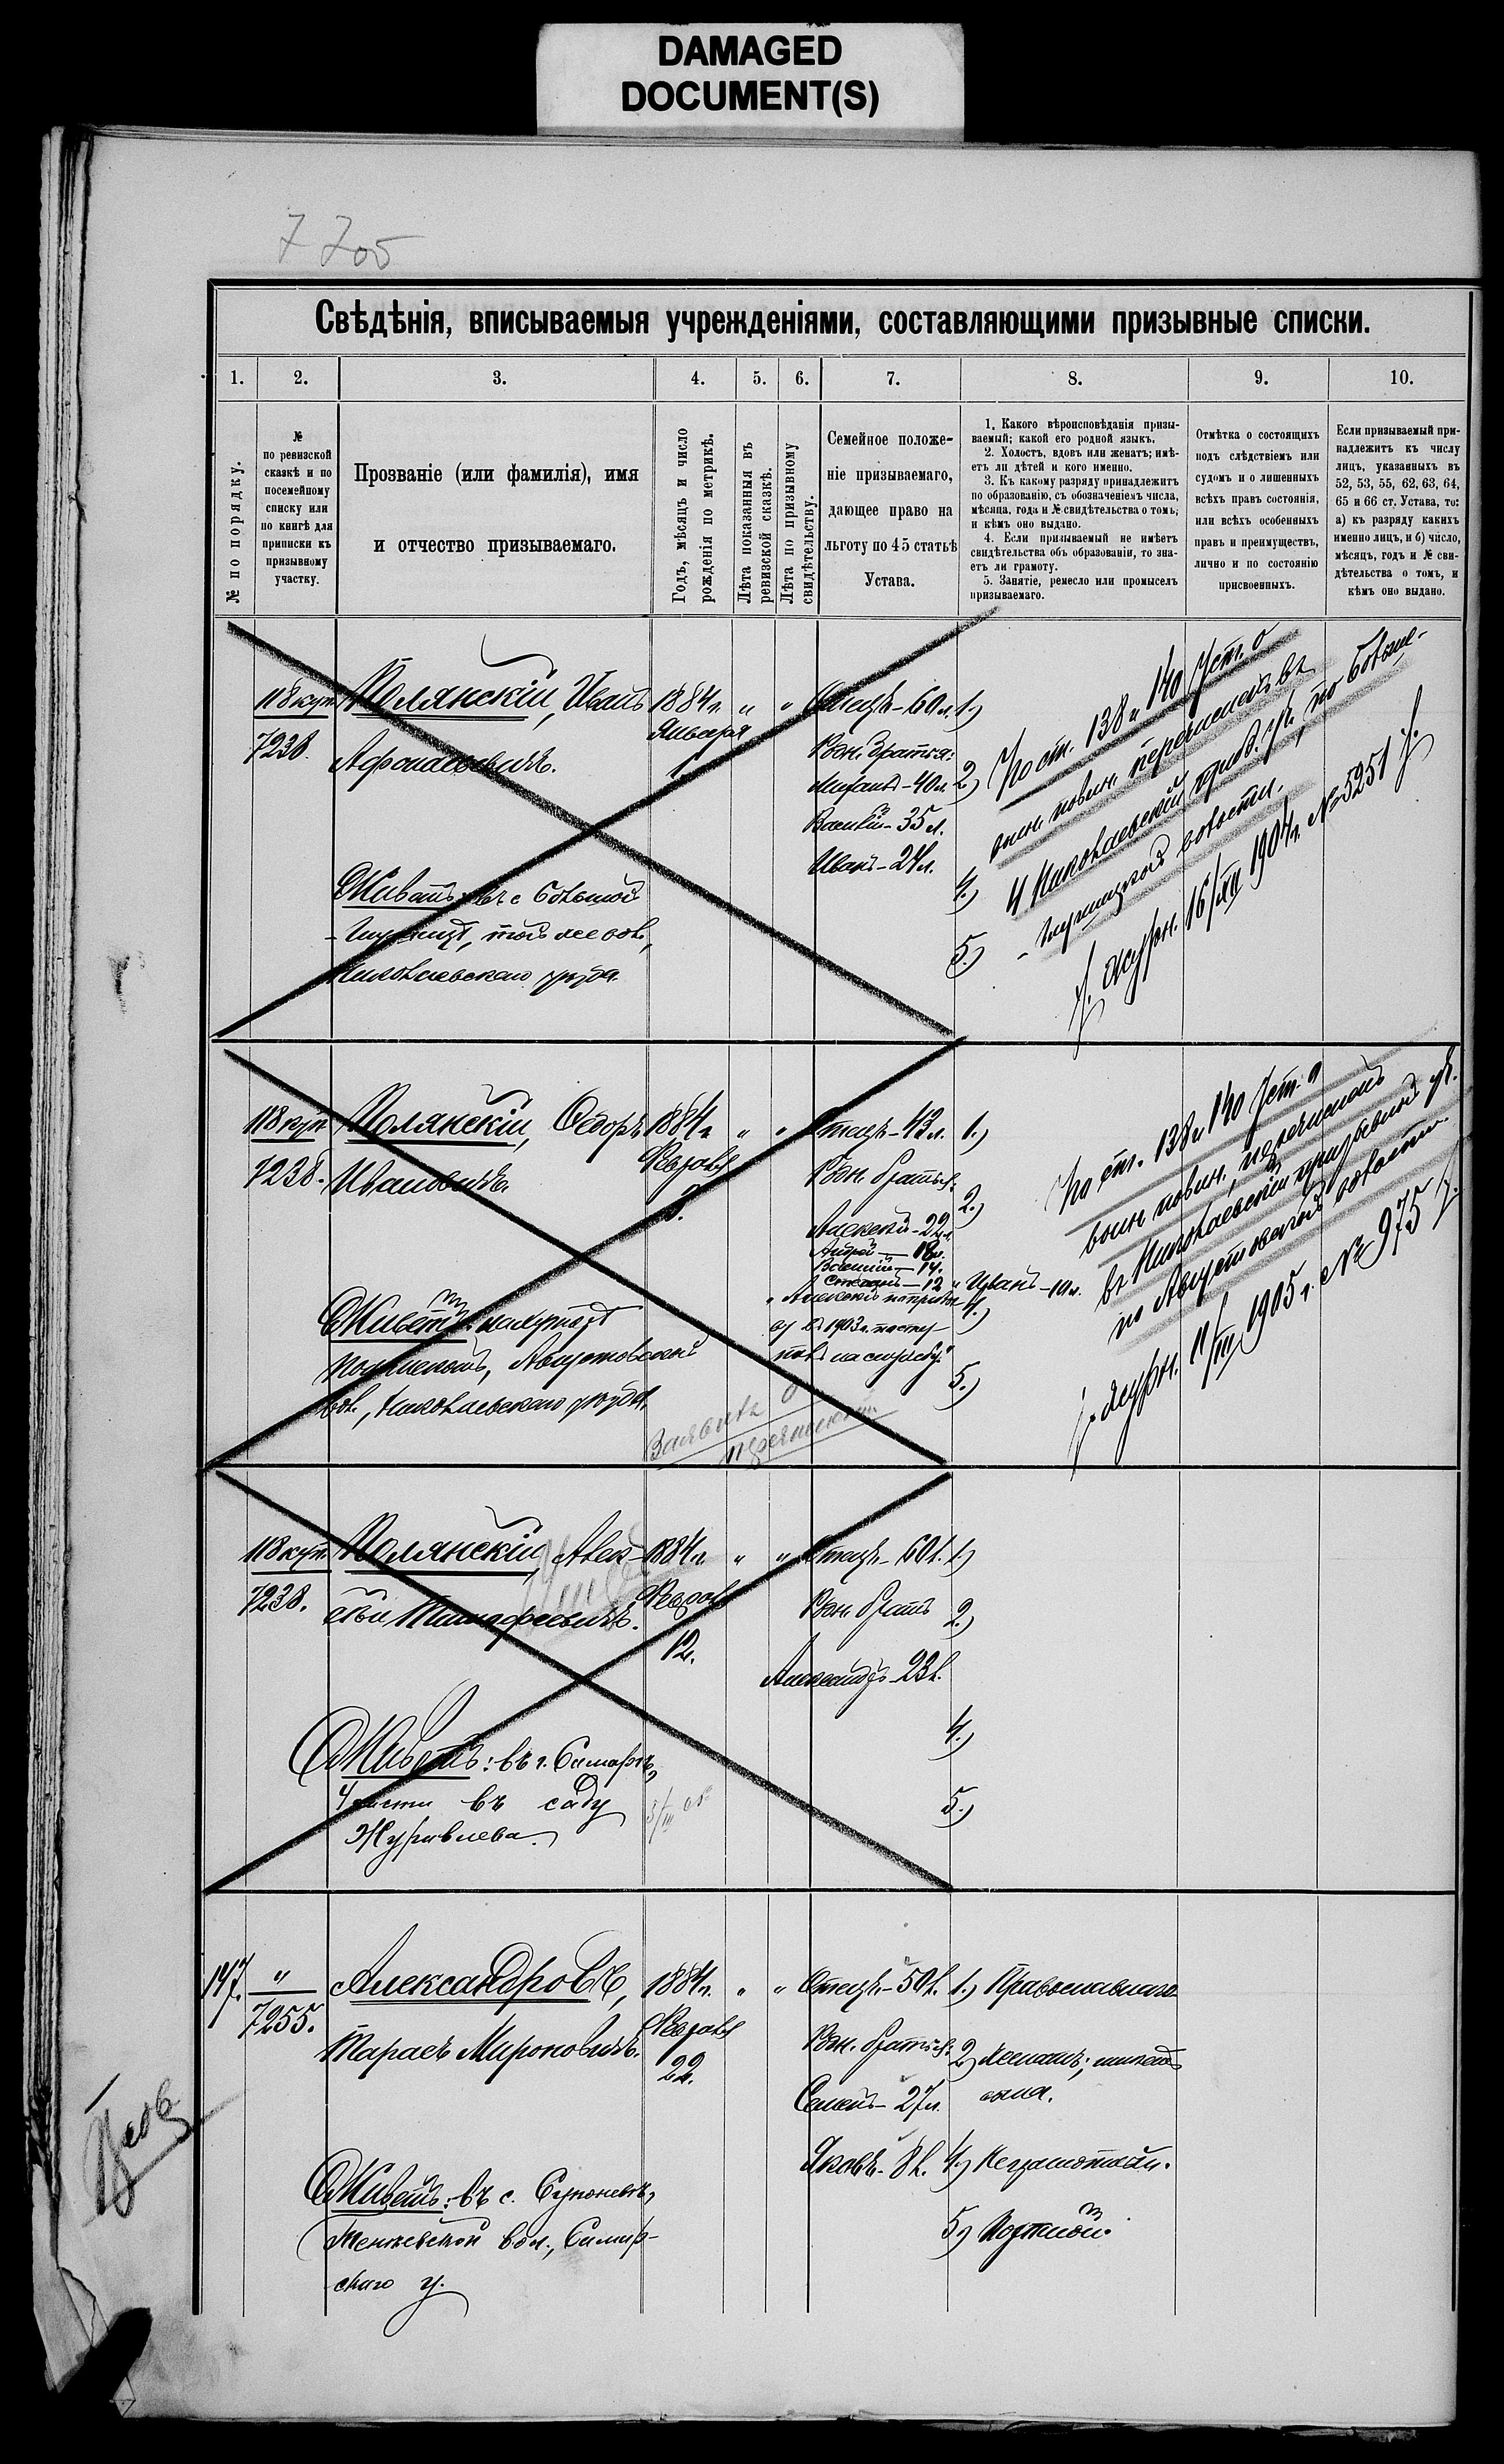 DAMAGED
DOCUMENT(S)
Свѣдѣнія, вписываемыя учрежденіями, составляющими призывные списки.
1. 2. 3. 4. 5. 6. 7. 8. 9. 10.
№ по порядку.
№
по ревизской
сказкѣ и по
посемейному
списку или
по книгѣ для
приписки къ
призывному
участку.
Прозваніе (или фамилія), имя
и отчество призываемаго.
Годъ, мѣсяцъ и число
рожденія по метрикѣ.
Лѣта показанныя въ
ревизской сказкѣ.
Лѣта по призывному
свидѣтельству.
Семейное положе-
ніе призываемаго,
дающее право на
льготу по 45 статьѣ
Устава.
1. Какого вѣроисповѣданія призы-
ваемый; какой его родной языкъ.
2. Холостъ, вдовъ или женатъ; имѣ-
етъ ли дѣтей и кого именно.
3. Къ какому разряду принадлежитъ
по образованію, съ обозначеніемъ числа,
мѣсяца, года и № свидѣтельства о томъ;
и кѣмъ оно выдано.
4. Если призываемый не имѣетъ
свидѣтельства объ образованіи, то зна-
етъ ли грамоту.
5. Занятіе, ремесло или промыселъ
призываемаго.
Отмѣтка о состоящихъ
подъ слѣдствіемъ или
судомъ и о лишенныхъ
всѣхъ правъ состоянія,
или всѣхъ особенныхъ
правъ и преимуществъ,
лично и по состоянію
присвоенныхъ.
Если призываемый при-
надлежитъ къ числу
лицъ, указанныхъ въ
52, 53, 55, 62, 63, 64,
65 и 66 ст. Устава, то:
а) къ разряду какихъ
именно лицъ, и б) число,
мѣсяцъ, годъ и № сви-
дѣтельства о томъ, и
кѣмъ оно выдано.
118 куп. Полянскій, Иванъ 1884 г. " " Отецъ - 60 л. 1.)
7238. Афонасьевичъ. Января 1. Род. братья:
Михаилъ - 40 л. 2.)
Василій - 35 л.
Иванъ - 24 л. 4.)
Живетъ: въ с. Большой
Глушицѣ, той же вол.,
Николаевскаго уѣзда. 5.)
По ст. 138 и 140 Уст. о
воин. повин. перечисленъ въ
4 Николаевскій приз. уч., по Больше-
- Глушицкой волости.
Журн. 16/XII 1904 г. № 5251
118 куп. Полянскій, Ѳедоръ 1884 г. " " Отецъ - 43 л. 1.)
7238. Ивановичъ. Февраля 8. Род. братья: 2.)
Алексѣй - 22 л.
Андрей - 18 л.
Василій - 14.
Степанъ - 12 " Иванъ - 10 л.
4.)
Живетъ: на хуторѣ
Августовской
вол., Николаевскаго уѣзда. 5.)
По ст. 138 и 140 Уст. о
воин. повин. перечисленъ
въ Николаевскій призывной уч.
по Августовской волости.
Журн. 11/III 1905 г. № 975
118 куп. Полянскій, Алек- 1884 г. " " Отецъ - 60 л. 1.)
7238. сѣй Тимофеевичъ. Февраля Род. братъ 2.)
12. Александръ - 23 л.
4.)
Живетъ: въ г. Самарѣ,
4 части въ саду 5.)
Журавлева.
147. " Александровъ, 1884 г. " " Отецъ - 50 л. 1.) Православнаго
7255. Тарасъ Мироновичъ. Февраля Род. братья: 2.) Женатъ;
22. Семенъ - 27 л. сына.
Яковъ - 8 л. 4.) Неграмотный.
Живетъ: въ с.
вол., Самар- 5.) Портной.
скаго у.